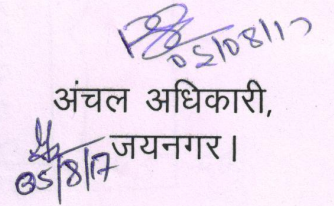 05/08/17
अंचल अधिकारी,
जयनगर।
05/8/17